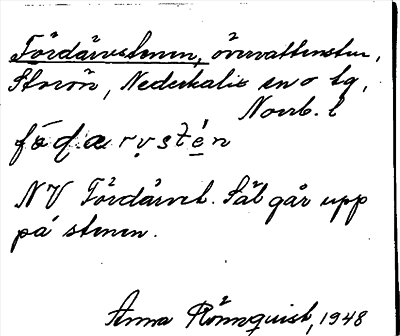 Fördärvstenen, övervattensten,
Storön, Nederkalix sn o tg,
Norrb. l
NV Fördärvet. Säl går upp
på stenen.
Anna Rönnquist, 1948